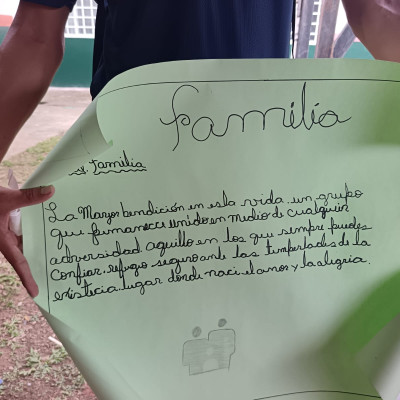 familia
familia
La Mayor bendición en esta vida un grupo
que permanece unido en medio de cualquier
adversidad aquillo en los que sempre puedes
Confiar, refugio seguro ante las timpestades de la
existecia lugar donde naci el amor y la alegria.